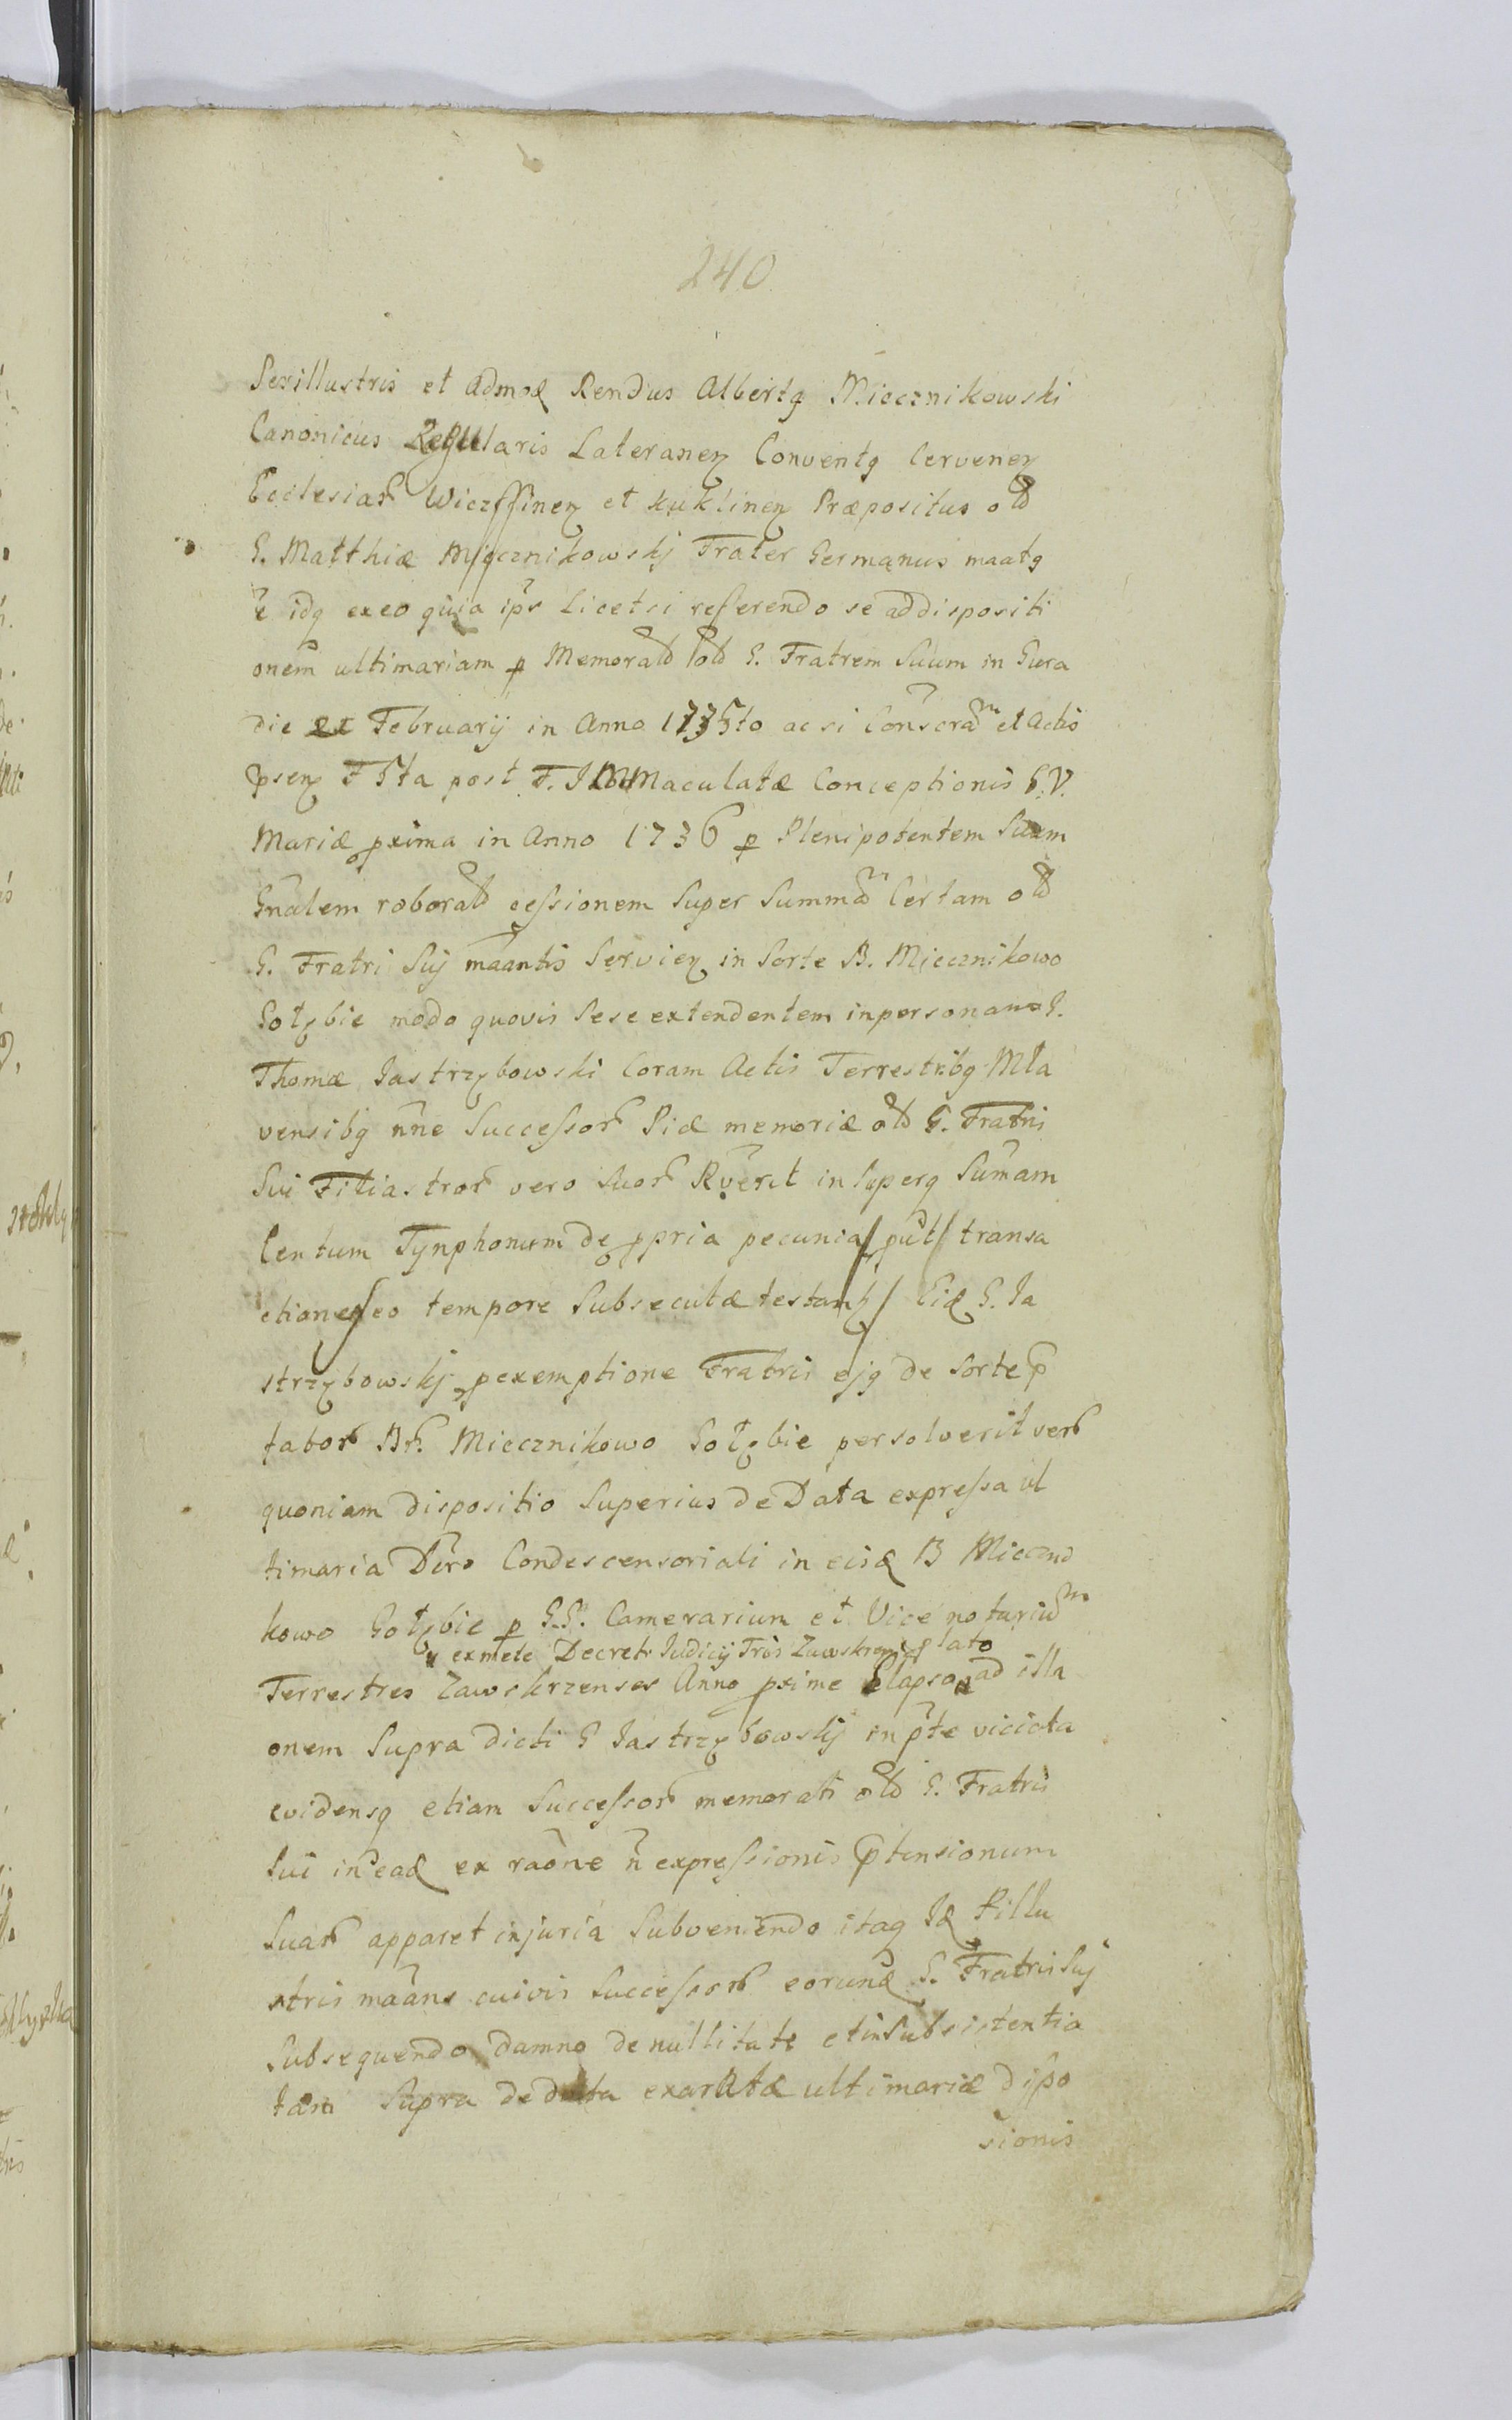 240
Perillustris et Admod Rendus Albertq Miecznikowski
Canonicus Regularis Lateranen Conventq Cervenen
Ecclesiar Wieczffinen et Kuklinen Præpositus olĩ
G. Matthiæ Miecznikowskj Frater Germanus maatq
idq ex eo quia ips Licet si referendo se ad dispositi
onem ultimariam p Memorat olĩ G. Fratrem Suum in Gura
die Februarij in Anno 1735to ac si Conscram et Actis
psen F 5ta post F. Immaculatæ Conceptionis B.V.
Mariæ pxima in Anno 1736 p Plenipotentem Suum
Gnalem roborat cessionem Super Summam Certam olĩ
G. Fratri Suj maantis Servien in Sorte B. Miecznikowo
Gołębie modo quovis Sese extendentem in personam G.
Thomæ Jastrzębowski Coram Actis Terrestribq Mła
vensibq nne Successor Piæ memoriæ olĩ G. Fratris
Sui Filiastror vero Suor in Super Sumam
Centum Tynphonum de ppria pecunia / put / transa
ctione eo tempore Subsecutæ / Eid G. Ja
strzębowskj p exemptione Fratris ejq de Sorte p
tabor Br. Miecznikowo Gołębie persolverit ver
quoniam dispositio Superius de Data expressa ul
timaria Dcro Condescensoriali in eisd B Mieczni
kowo Gołębie p G.G. Camerarium et Vice notarium
ex mete Decreti Judicij Tris Zawskrzen lato
Terrestres Zawskrzenses Anno pxime Elapso ad illa
onem Supra dicti G Jastrzębowskj in pte viciata
evidensq etiam Successor memorati olĩ G. Fratris
Sui in ead ex raone n expressionis ptensionum
Suar apparet injuria Subveniendo itaq Id Pillu
stris maans cuivis Successor eorund G. Fratris Suj
Subsequendo damno de nullitate et in Subsistentia
tam Supra de data exaratæ ultimariæ dispo
sionis